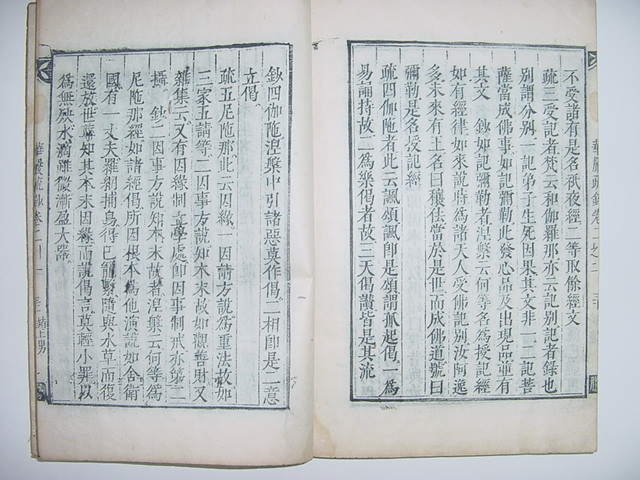 不受諸有是名祇夜經二等取餘經文
疏三受記者梵云和伽羅那亦云記別記者錄也
別謂分別一記弟子生死因果其文非一二記菩
薩當成佛事如法華三周及出現品並有
其文　鈔如記彌勒者涅槃云何等名為授記經
如有經律如來說時為諸天人受佛記別汝阿逸
多未來有王名曰穰佉當於是世而成佛道號曰
彌勒是名授記經
疏四伽陁者此云諷頌諷即是頌謂孤起偈一為
易誦持故二為樂偈者故三天偈讚皆是其流
華嚴疏鈔卷二之二
鈔四伽陁涅槃中引諸惡莫作偈二相即是二意
立偈
疏五尼陁那此云因緣一因請方說為重法故如
三家五請等二因事方說如本末故如觀善財又
雜集云又有因緣制立學處即因事制戒亦第二
攝　鈔二因事方說知本末故者涅槃云何等為
尼陁那經如諸經偈所因根本為他演說如舍衛
國有一丈夫羅網捕鳥得已籠繫隨與水草而復
還放世尊知其本末因緣而說偈言莫輕小罪以
為無殃水渧雖微漸盈大器
華嚴疏鈔卷二十一